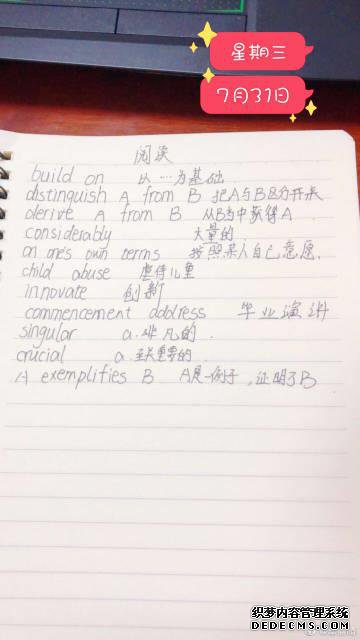 星期三
7月31日
阅读
build on 以……为基础
distinguish A from B 把A与B区分开来
derive A from B 从B当中获得A
considerably 大量的
on one's own terms 按照某人自己意愿.
child abuse 虐待儿童
innovate 创新
commencement address 毕业演讲
singular a.非凡的.
crucial a.至关重要的
A exemplifies B A是一例子,证明了B
织梦内容管理系统
DEDECMS.COM